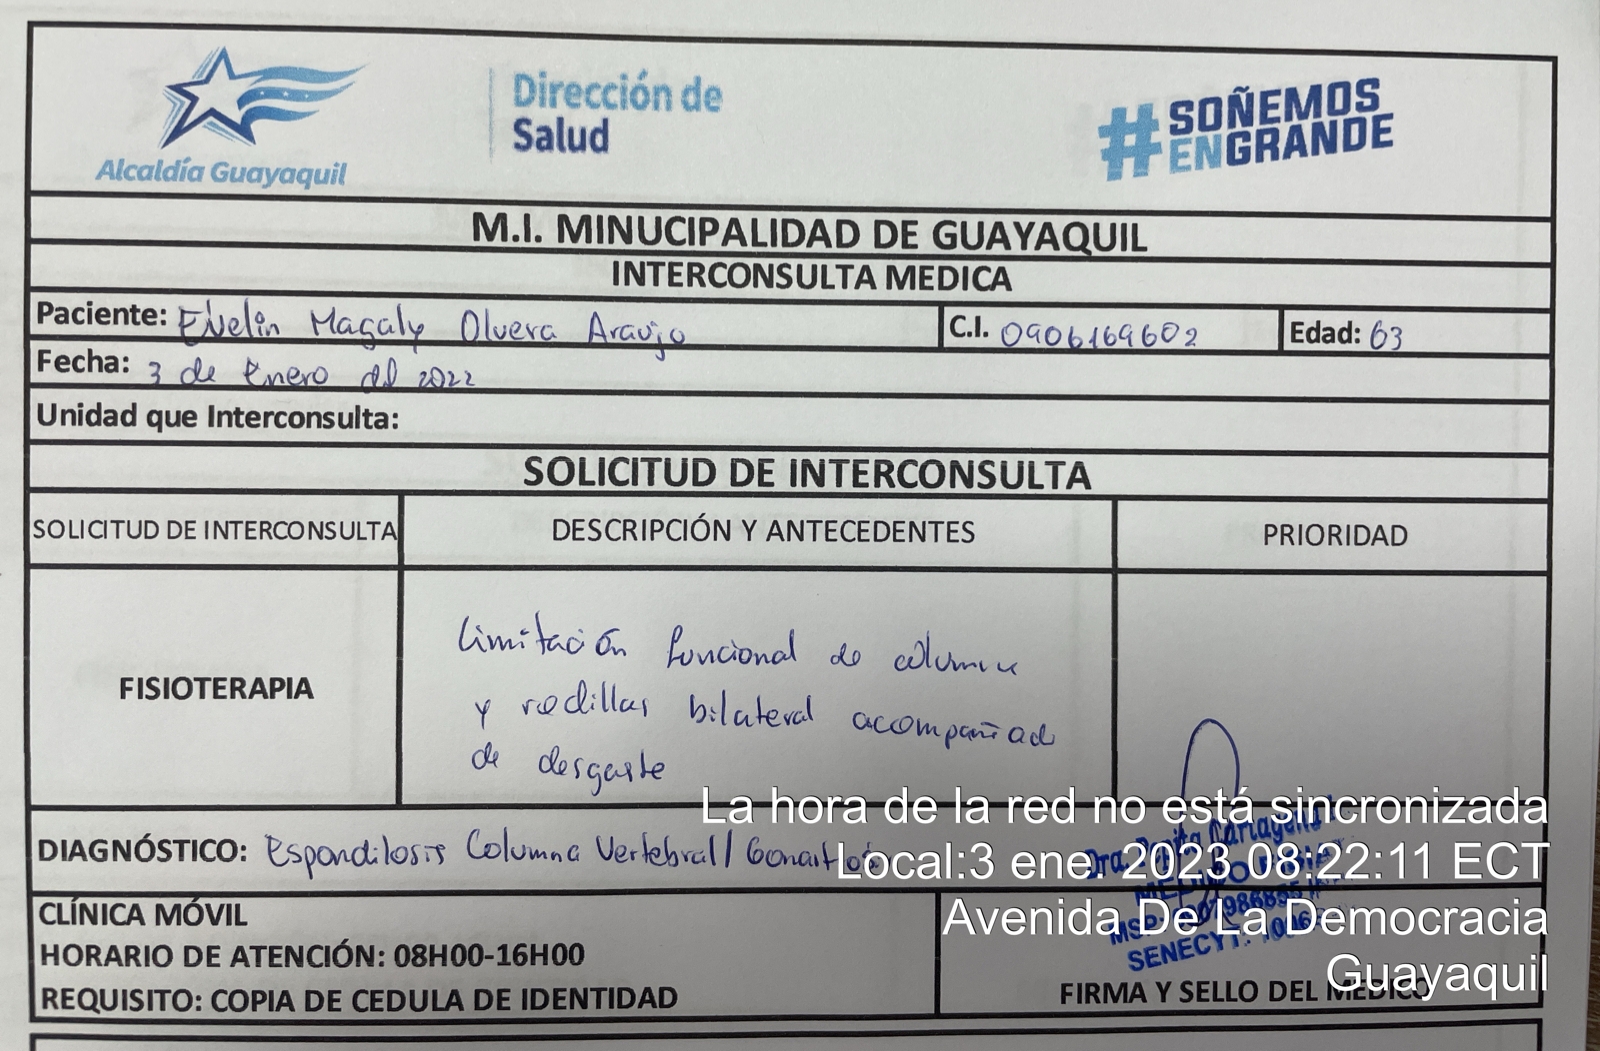 Alcaldía Guayaquil
Dirección de
Salud
#SOÑEMOS
ENGRANDE
M.I. MINUCIPALIDAD DE GUAYAQUIL
INTERCONSULTA MEDICA
Paciente: Evelin Magaly Olvera Araujo C.I. 0906169602 Edad: 63
Fecha: 3 de Enero del 2022
Unidad que Interconsulta:
SOLICITUD DE INTERCONSULTA
SOLICITUD DE INTERCONSULTA DESCRIPCIÓN Y ANTECEDENTES PRIORIDAD
FISIOTERAPIA
Limitación funcional de columna
y rodillas bilateral acompañad
de desgaste
DIAGNÓSTICO: Espondilosis Columna Vertebral/
CLÍNICA MÓVIL
HORARIO DE ATENCIÓN: 08H00-16H00
REQUISITO: COPIA DE CEDULA DE IDENTIDAD
Dra.
SENECYT:
FIRMA Y SELLO DEL MEDICO
La hora de la red no está sincronizada
Local:3 ene. 2023 08:22:11 ECT
Avenida De La Democracia
Guayaquil